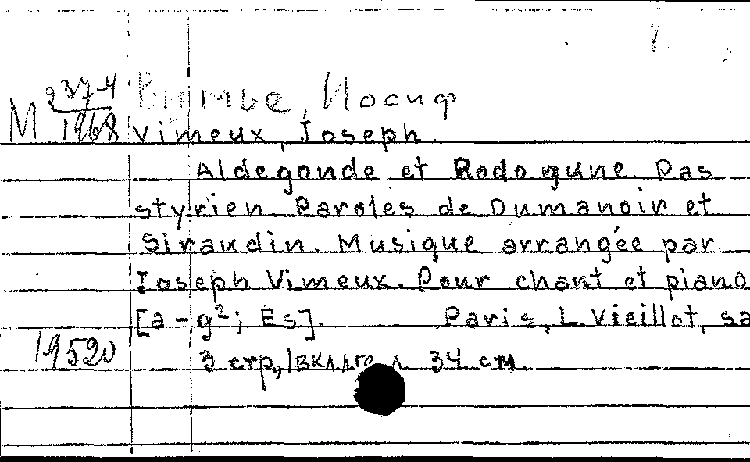 M 237-4
1968
Вимье, Иосиф
Vimeux, Joseph.
Aldegonde et Rodogune. Pas
styrien. Paroles de Dumanoir et
Siraudin. Musique arrangée par
Joseph Vimeux. Pour chant et piano
[a – g²; Es]. Paris, L. Vieillot, sa
19520
3 стр, 34 см